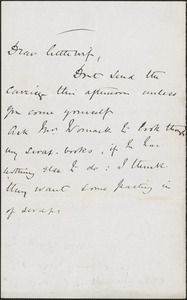 Dear little wife,
Don't send the
carriage this afternoon unless
you come yourself.
Ask Mrs Womack to look through
my scrap-books, if she has
nothing else to do: I think
they want some pasting in
of scraps